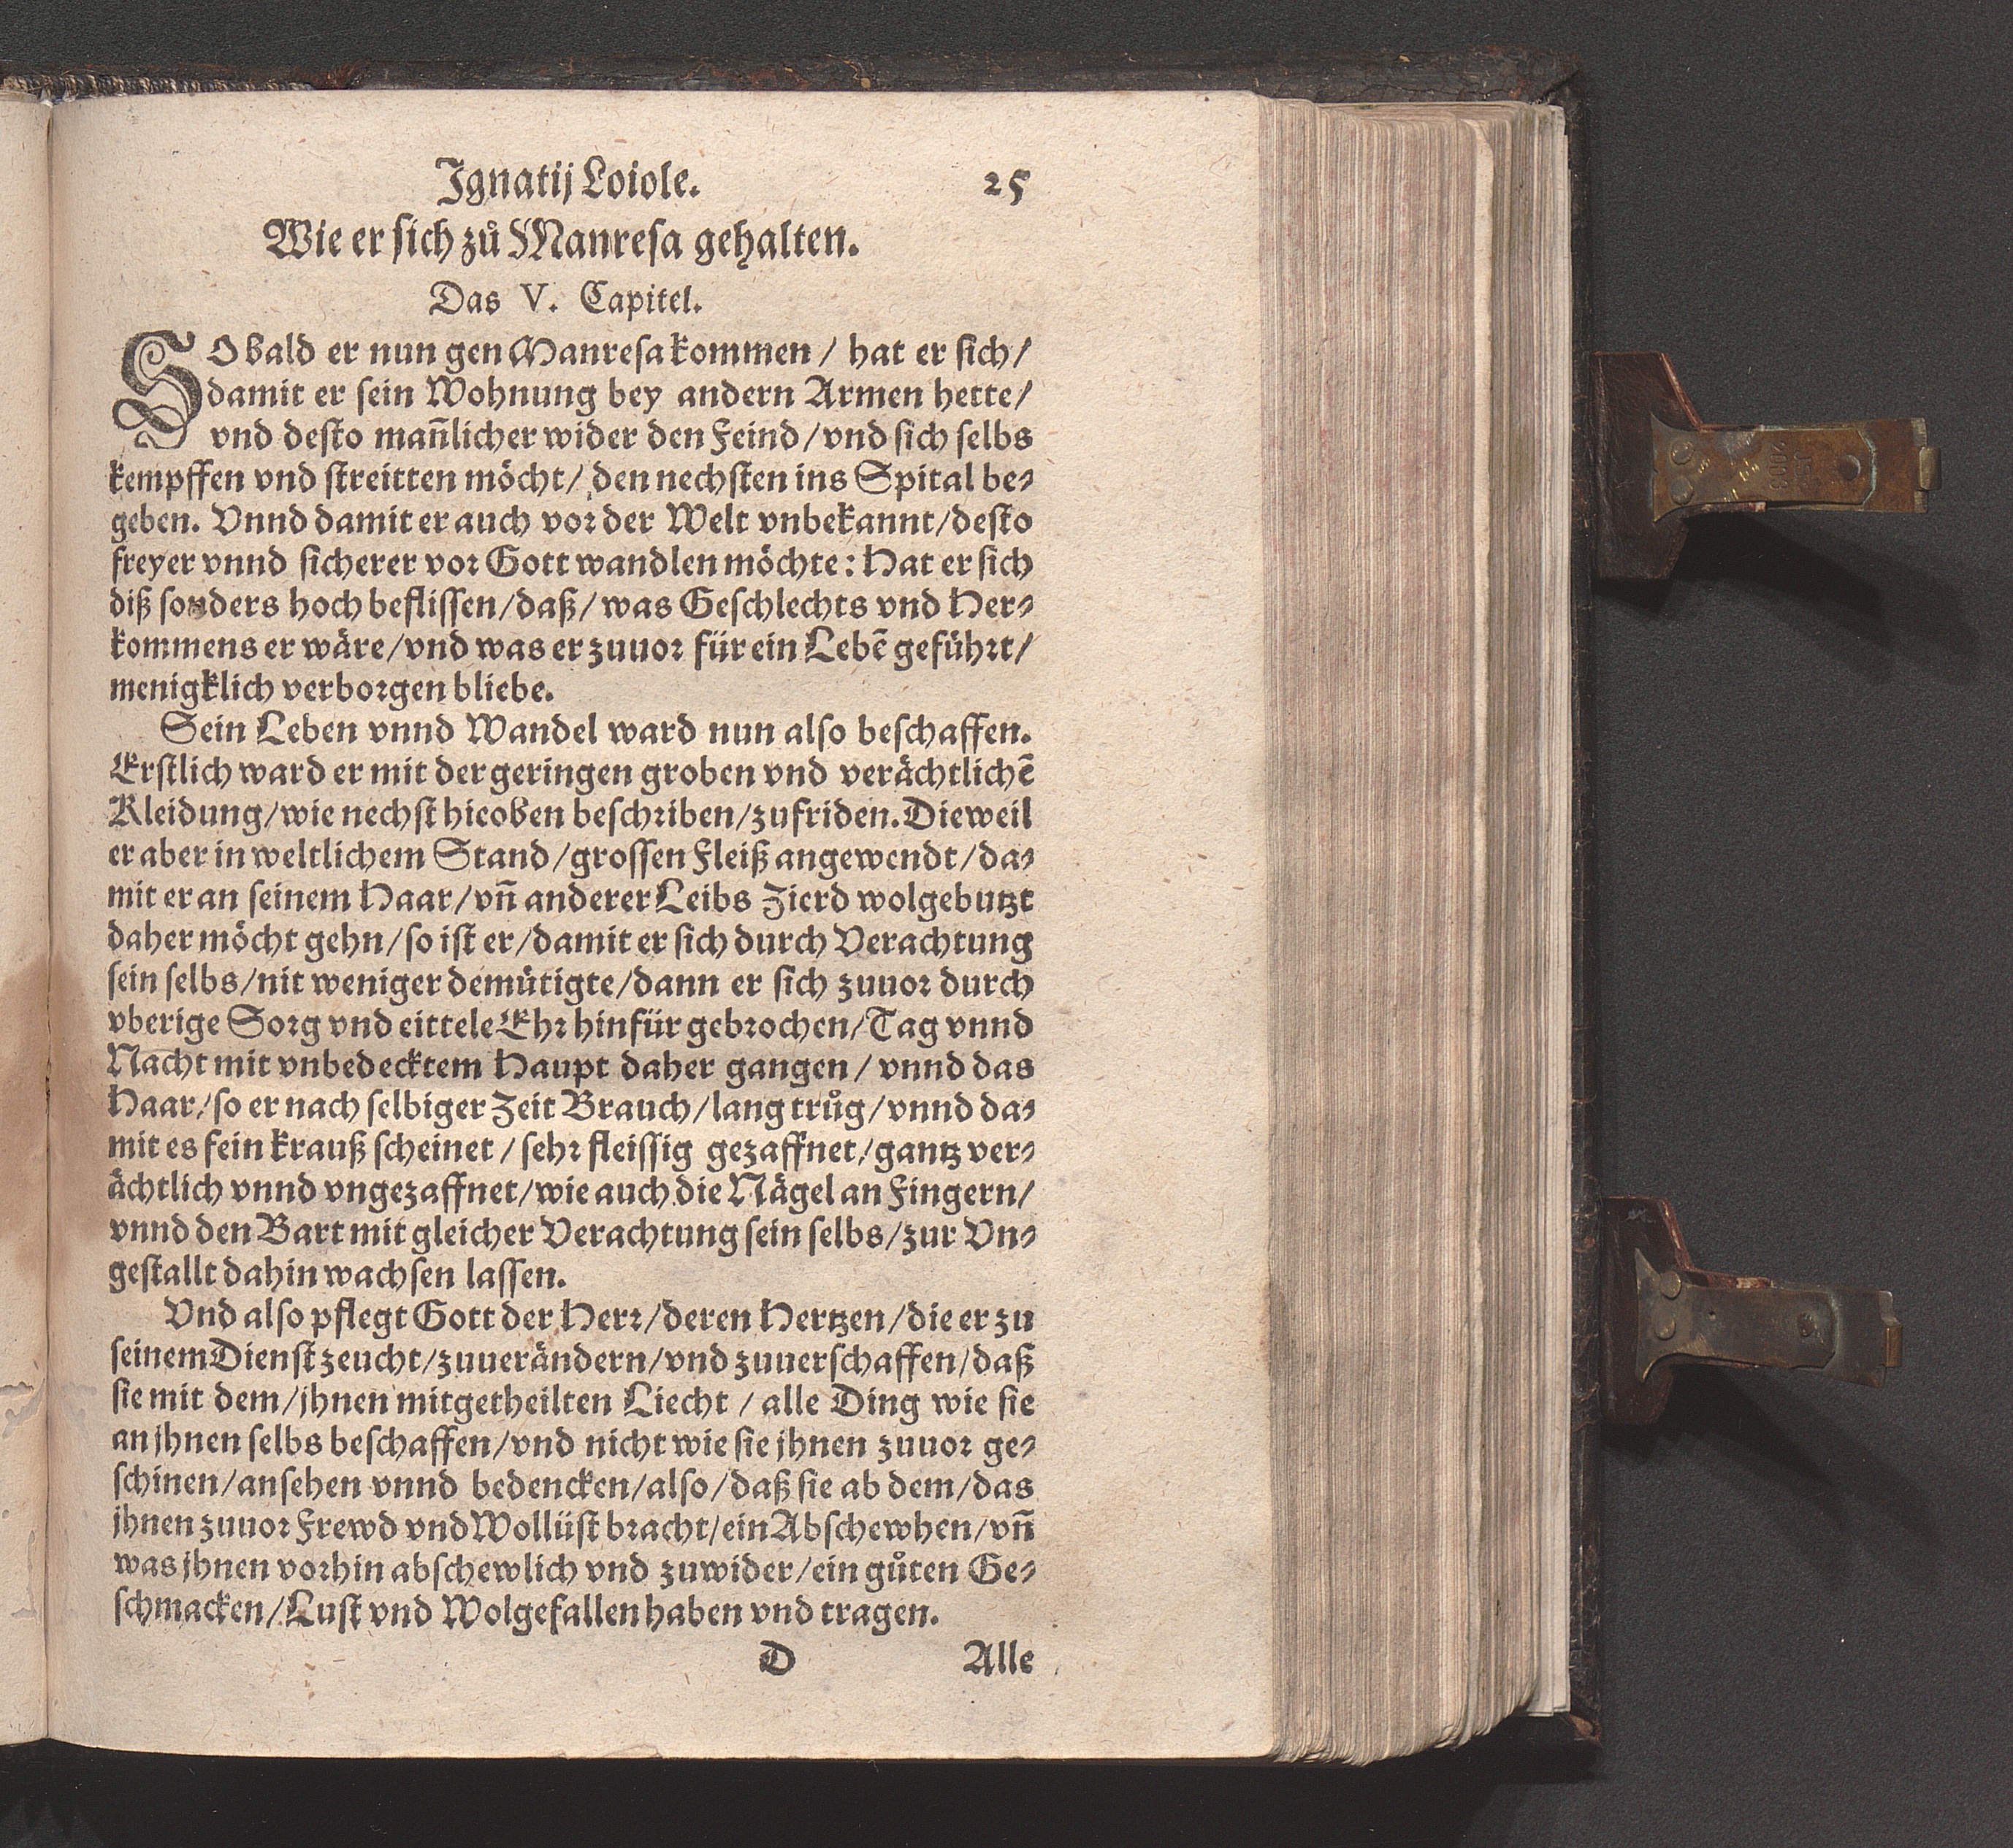 Ignatij Loiole. 25
Wie er sich zů Manresa gehalten.
Das V. Capitel.
SO bald er nun gen Manresa kommen / hat er sich /
damit er sein Wohnung bey andern Armen hette /
vnd desto mañlicher wider den Feind / vnd sich selbs
kempffen vnd streitten möcht / den nechsten ins Spital be-
geben. Vnnd damit er auch vor der Welt vnbekannt / desto
freyer vnnd sicherer vor Gott wandlen möchte: Hat er sich
diß sonders hoch beflissen / daß / was Geschlechts vnd Her-
kommens er wäre / vnd was er zuuor für ein Lebē geführt /
menigklich verborgen bliebe.
Sein Leben vnnd Wandel ward nun also beschaffen.
Erstlich ward er mit der geringen groben vnd verächtlichē
Kleidung / wie nechst hieoben beschriben / zufriden. Dieweil
er aber in weltlichem Stand / grossen Fleiß angewendt / da-
mit er an seinem Haar / vñ anderer Leibs Zierd wolgebutzt
daher möcht gehn / so ist er / damit er sich durch Verachtung
sein selbs / nit weniger demütigte / dann er sich zuuor durch
vberige Sorg vnd eittele Ehr hinfür gebrochen / Tag vnnd
Nacht mit vnbedecktem Haupt daher gangen / vnnd das
Haar / so er nach selbiger Zeit Brauch / lang trůg / vnnd da-
mit es fein krauß scheinet / sehr fleissig gezaffnet / gantz ver-
ächtlich vnnd vngezaffnet / wie auch die Nägel an Fingern /
vnnd den Bart mit gleicher Verachtung sein selbs / zur Vn-
gestallt dahin wachsen lassen.
Vnd also pflegt Gott der Herr / deren Hertzen / die er zu
seinem Dienst zeucht / zuuerändern / vnd zuuerschaffen / daß
sie mit dem / jhnen mitgetheilten Liecht / alle Ding wie sie
an jhnen selbs beschaffen / vnd nicht wie sie jhnen zuuor ge-
schinen / ansehen vnnd bedencken / also / daß sie ab dem / das
jhnen zuuor Frewd vnd Wollüst bracht / ein Abschewhen / vñ
was jhnen vorhin abschewlich vnd zuwider / ein gůten Ge-
schmacken / Lust vnd Wolgefallen haben vnd tragen.
D Alle